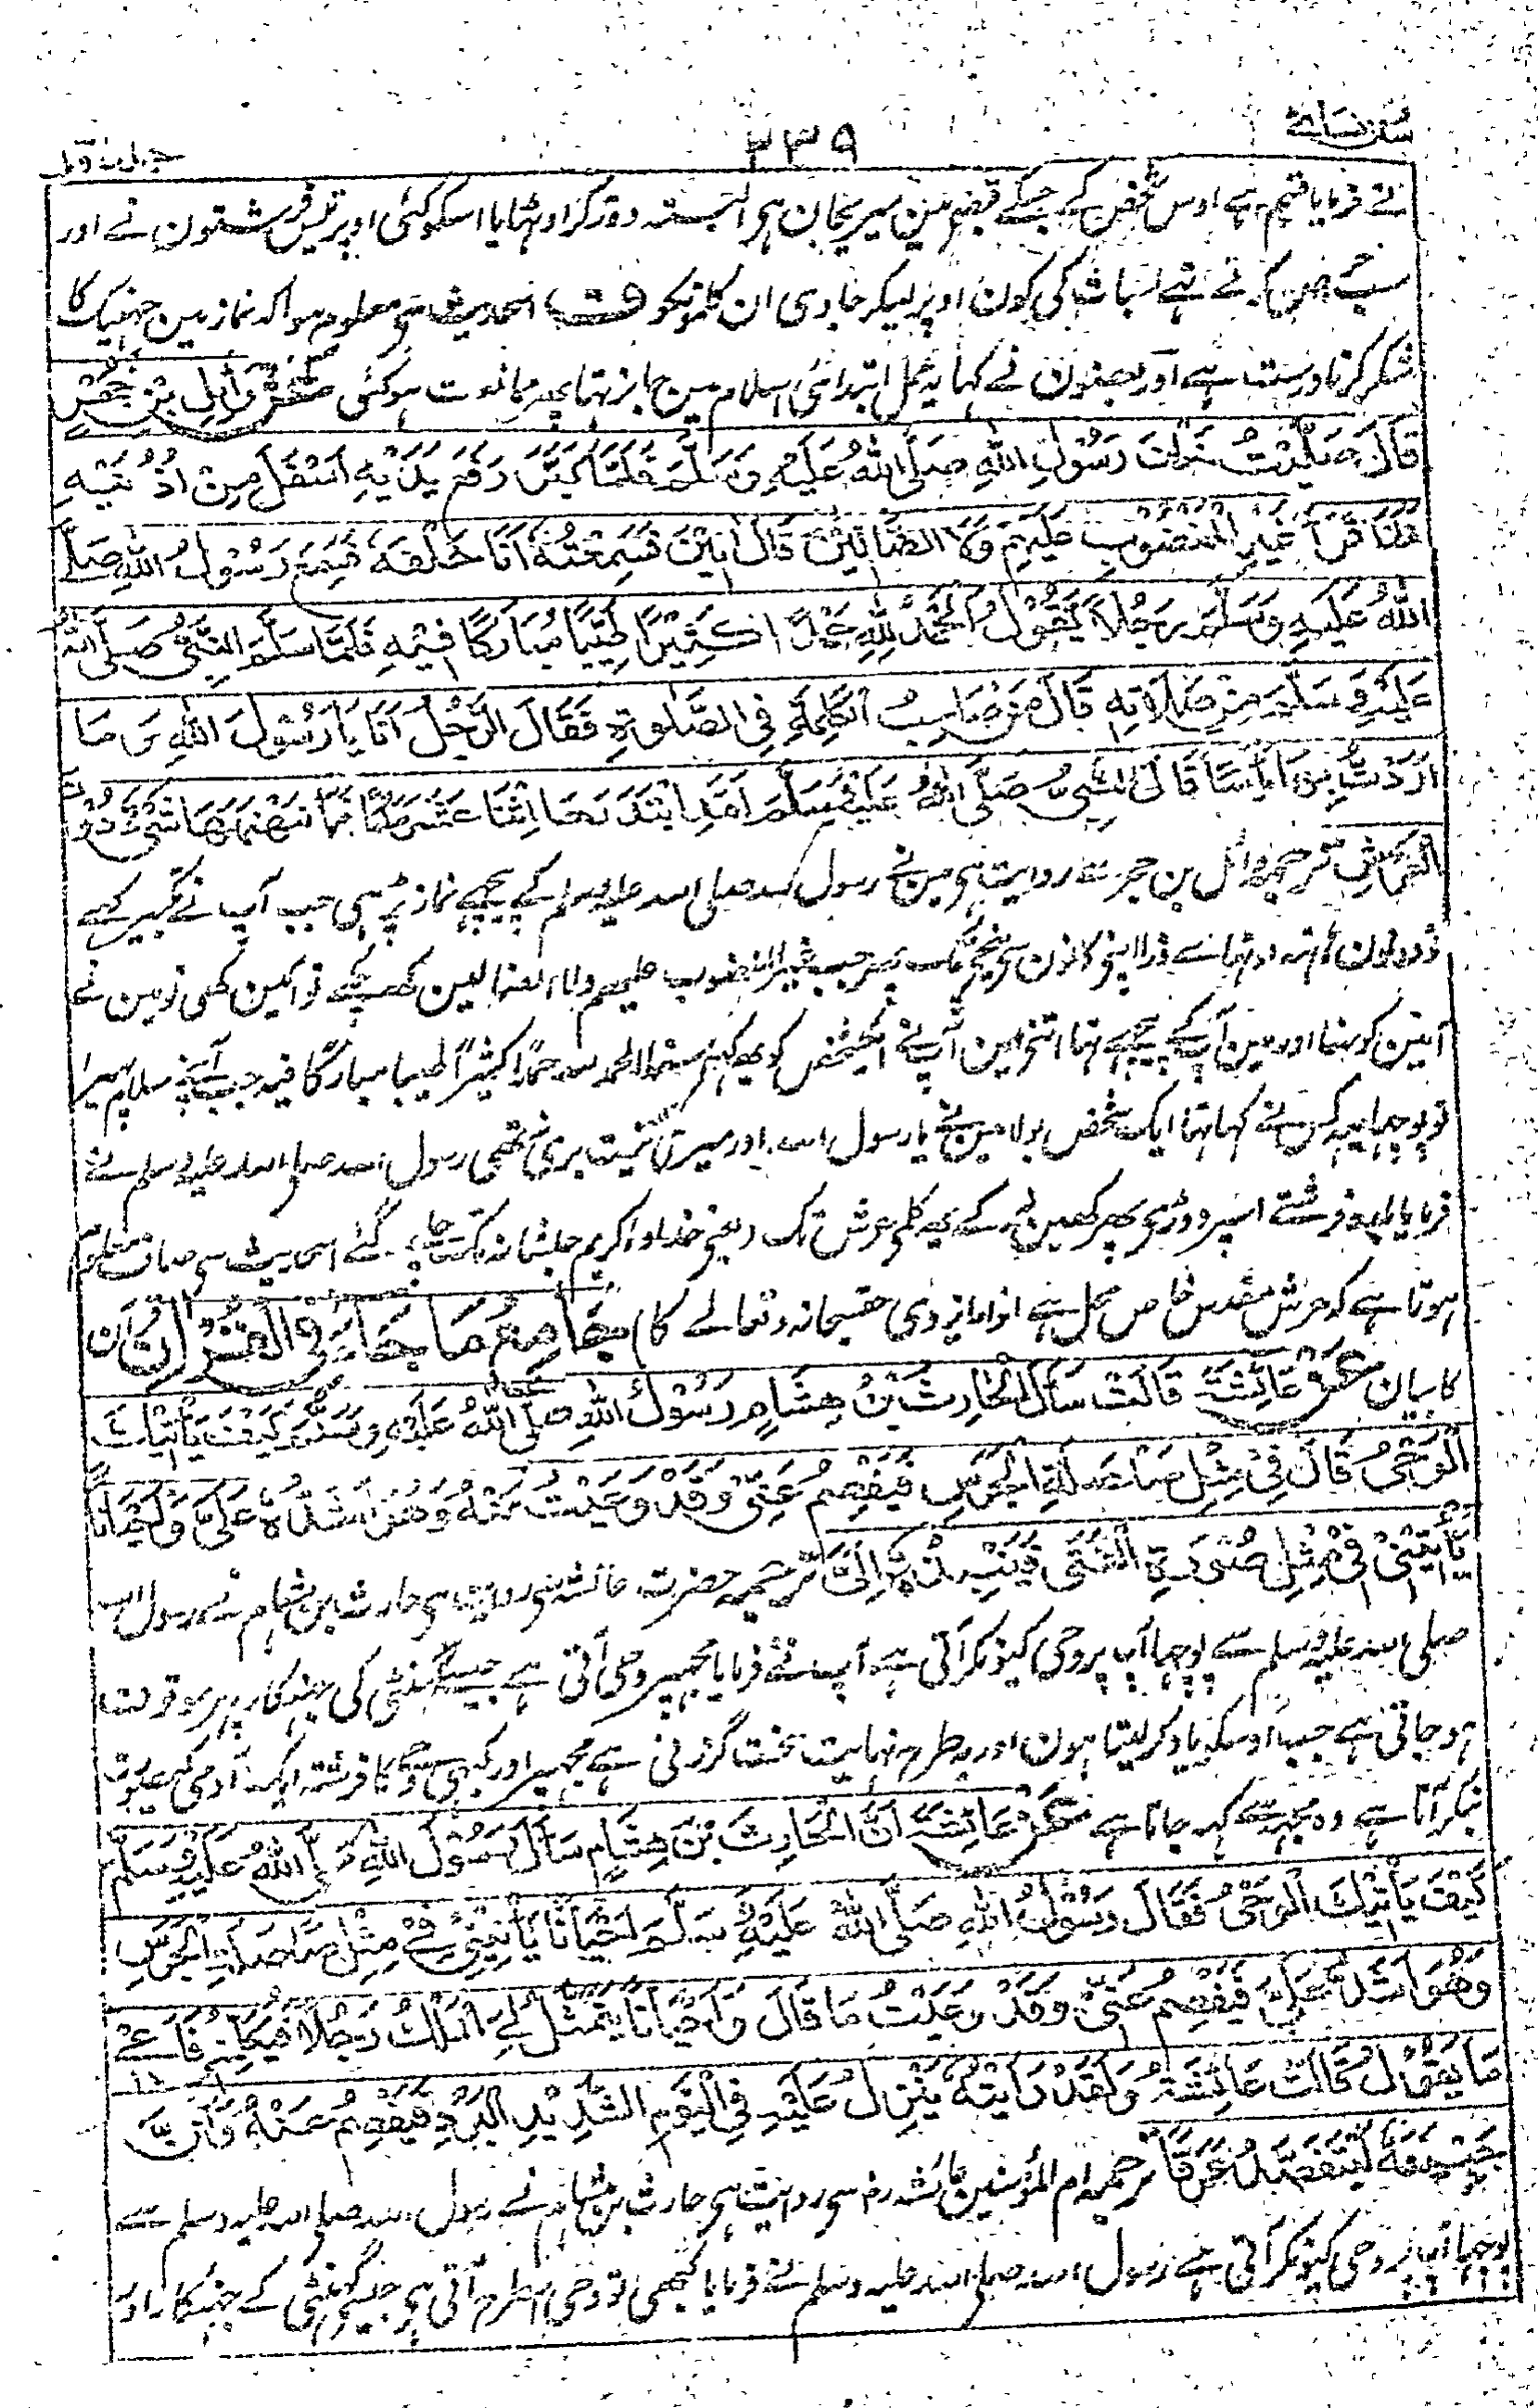 سنن نسائے
۲۳۹
جلد اول
نے فرمایا قسم ہے اوس شخص کے جسکے قبضہ مین میری جان ہی البتہ دوڑ کر اوٹھایا اسکو کئی اوپر تیس فرشتون نے اور
سب جلدی کرتے تھے اسبات کی کون اوپر لیکر جاوی ان کلمونکو ف اسحدیث سی معلوم ہوا کہ نماز مین چھینک کا
شکر کرنا درست ہے اور بعضون نے کہا یہ عمل ابتدائی اسلام مین جایز تھا پھر ممانعت ہوگئی عَنْ وَائِلِ بْنِ حُجْرٍ
قَالَ صَلَّيْتُ خَلْفَ رَسُوْلِ اللهِ صَلَّى اللهُ عَلَيْهِ وَسَلَّمَ فَلَمَّا كَبَّرَ رَفَعَ يَدَيْهِ اَسْفَلَ مِنْ اُذُنَيْهِ
فَلَمَّا قَرَأَ غَيْرِ الْمَغْضُوْبِ عَلَيْهِمْ وَلَا الضَّالِّيْنَ قَالَ اٰمِيْنَ فَسَمِعْتُهُ اَنَا خَلْفَهُ فَسَمِعَ رَسُوْلُ اللهِ صَلَّى
اللهُ عَلَيْهِ وَسَلَّمَ رَجُلًا يَقُوْلُ اَلْحَمْدُ لِلّٰهِ حَمْدًا كَثِيْرًا طَيِّبًا مُبَارَكًا فِيْهِ فَلَمَّا سَلَّمَ النَّبِيُّ صَلَّى اللهُ
عَلَيْهِ وَسَلَّمَ مِنْ صَلَاتِهِ قَالَ مَنْ صَاحِبُ الْكَلِمَةِ فِى الصَّلٰوةِ فَقَالَ الرَّجُلُ اَنَا يَا رَسُوْلَ اللهِ وَ مَا
اَرَدْتُ بِهَا بَأْسًا قَالَ النَّبِيُّ صَلَّى اللهُ عَلَيْهِ وَسَلَّمَ لَقَدِ ابْتَدَرَهَا اِثْنَا عَشَرَ مَلَكًا فَمَا نَهْنَهَهَا شَىْءٌ دُوْنَ
الْعَرْشِ ترجمہ وائل بن حجر سے روایت ہی مین نے رسول اللہ صلی اللہ علیہ وسلم کے پیچھے نماز پڑہی جب آپ نے تکبیر کہے
تو دونون ہاتہ اوٹہائے ذرا اپنی کانون سی نیچے تک پہر جب غیر المغضوب علیہم ولا الضالین کہہ چکے تو آمین کہی تو مین نے
آمین کو سنا اور مین آپ کے پیچھے تہا اتنی مین آپ نے ایک شخص کو یہ کہتے سنا الحمد للہ حمدًا کثیرًا طیبا مبارکا فیہ جب آپنے سلام پہیرا
تو پوچھا یہ کس نے کہا تہا ایک شخص بولا مین نے یا رسول اللہ اور میری نیت بری نہ تھی رسول اللہ صلی اللہ علیہ وسلم نے
فرمایا بارہ فرشتے اسپر دوڑی پھر کہین نہ رکے یہ کلمی عرش تک (یعنی خداوند کریم جلشانہ تک چلے گئے) اسحدیث سی صاف معلوم
ہوتا ہے کہ عرش مقدس خاص محل ہے انوار ایزدی حقسبحانہ وتعالے کا جَامِعُ مَا جَاءَ فِى الْقُرْاٰنِ قرآن
کا بیان عَنْ عَائِشَةَ قَالَتْ سَأَلَ الْحَارِثُ بْنُ هِشَامٍ رَسُوْلَ اللهِ صَلَّى اللهُ عَلَيْهِ وَسَلَّمَ كَيْفَ يَأْتِيْكَ
الْوَحْىُ قَالَ فِىْ مِثْلِ صَلْصَلَةِ الْجَرَسِ فَيَفْصِمُ عَنِّىْ وَقَدْ وَعَيْتُ عَنْهُ وَهُوَ اَشَدُّهُ عَلَىَّ وَاَحْيَانًا
يَأْتِيْنِىْ فِىْ مِثْلِ صُوْرَةِ الْفَتٰى فَيَنْبِذُهُ اِلَىَّ ترجمہ حضرت عائشہ سی روایت ہی حارث بن ہشام نے رسول اللہ
صلی اللہ علیہ وسلم سے پوچہا آپ پر وحی کیونکر آتی ہے آپ نے فرمایا مجہپر وحی آتی ہے جیسے گھنٹی کی جہنکار پہر موقوف
ہو جاتی ہے جب اوسکو یاد کر لیتا ہون اور یہ طرح نہایت سخت گزرتی ہے مجہپر اور کبہی وحی کا فرشتہ ایک آدمی کی صورت
بنکر آتا ہے وہ مجہسے کہہ جاتا ہے عَنْ عَائِشَةَ اَنَّ الْحَارِثَ بْنَ هِشَامٍ سَأَلَ رَسُوْلَ اللهِ صَلَّى اللهُ عَلَيْهِ وَسَلَّمَ
كَيْفَ يَأْتِيْكَ الْوَحْىُ فَقَالَ رَسُوْلُ اللهِ صَلَّى اللهُ عَلَيْهِ وَسَلَّمَ اَحْيَانًا يَأْتِيْنِىْ فِىْ مِثْلِ صَلْصَلَةِ الْجَرَسِ
وَهُوَ اَشَدُّهُ عَلَىَّ فَيَفْصِمُ عَنِّىْ وَقَدْ وَعَيْتُ مَا قَالَ وَاَحْيَانًا يَتَمَثَّلُ لِىَ الْمَلَكُ رَجُلًا فَيُكَلِّمُنِىْ فَاَعِىْ
مَا يَقُوْلُ قَالَتْ عَائِشَةُ وَلَقَدْ رَاَيْتُهُ يَنْزِلُ عَلَيْهِ فِى الْيَوْمِ الشَّدِيْدِ الْبَرْدِ فَيَفْصِمُ عَنْهُ وَاِنَّ
جَبِيْنَهُ لَيَتَفَصَّدُ عَرَقًا ترجمہ ام المؤمنین عائشہ رض سی روایت ہی حارث بن ہشام نے رسول اللہ صلی اللہ علیہ وسلم سے
پوچہا آپ پر وحی کیونکر آتی ہے رسول اللہ صلی اللہ علیہ وسلم نے فرمایا کبھی تو وحی اسطرح آتی ہی جیسے گھنٹی کے جہنکار اور